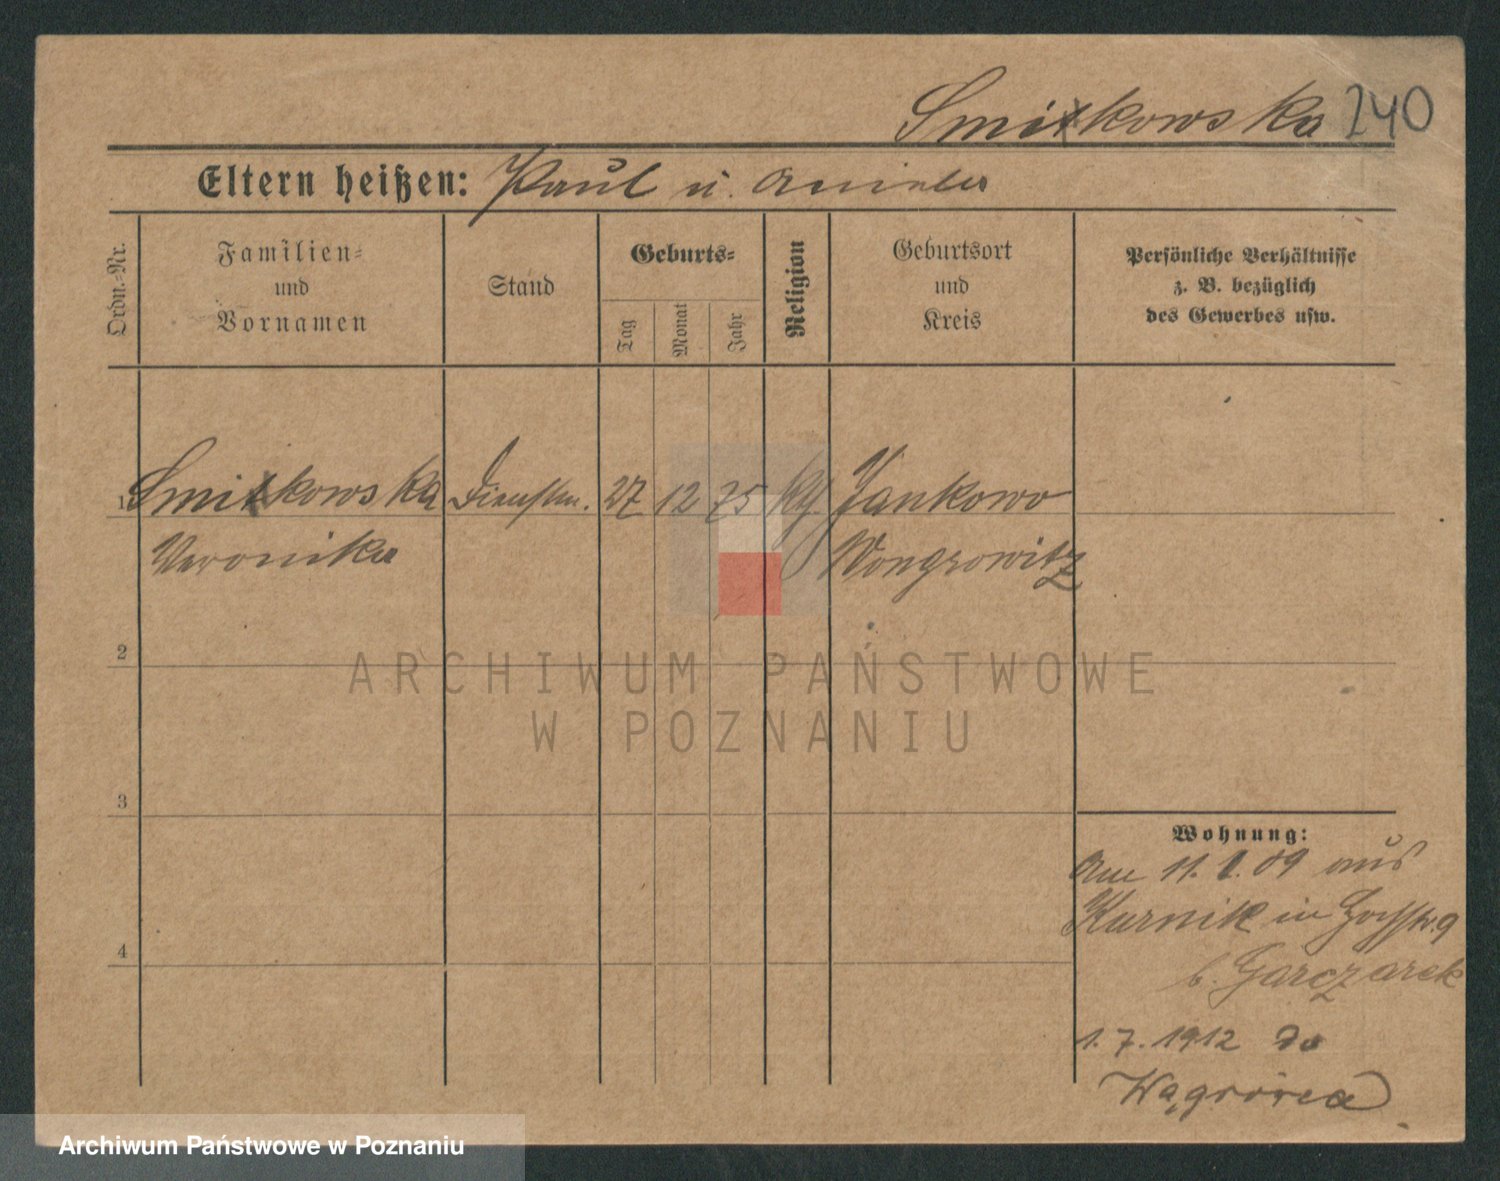 Smitkowska 240
Eltern heißen: Paul u. Aniela
Ordn.-Nr.
Familien-
und
Vornamen
Stand
Geburts-
Tag
Monat
Jahr
Religion
Geburtsort
und
Kreis
Persönliche Verhältnisse
z. B. bezüglich
des Gewerbes usw.
1 Smitkowska Dienstm. 27 12 75 Jankowo
Veronika Wongrowitz
2
3
4
Wohnung:
Am 11. 1. 09 aus
Kurnik in 9
b. Garczarek
1. 7. 1912 do
Wągrówca
ARCHIWUM PAŃSTWOWE
W POZNANIU
Archiwum Państwowe w Poznaniu